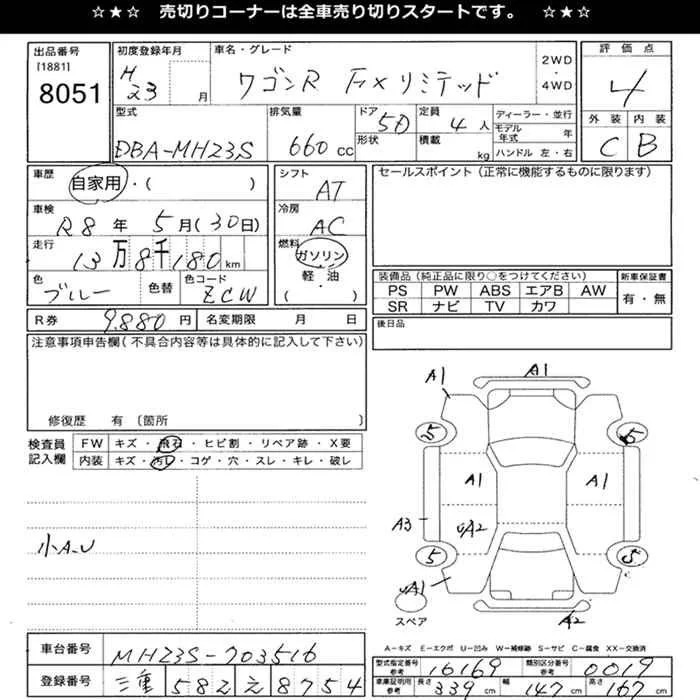 ☆★☆ 売切りコーナーは全車売り切りスタートです。 ☆★☆
出品番号 初度登録年月 車名・グレード 2WD ・ 4WD 評価点
[1881] 8051 H23 月 ワゴンR FXリミテッド 4
型式 排気量 ドア 5D 定員 4人 ディーラー・並行 外装 内装
DBA-MH23S 660cc 形状 積載 kg モデル年式 年 C B
ハンドル 左・右
車歴 自家用・( ) シフト AT セールスポイント(正常に機能するものに限ります)
車検 R8年 5月(30日) 冷房 AC
走行 13万8千180km 燃料 ガソリン・軽・油 ( )
色 ブルー 色替 色コード ZCW
装備品(純正品に限り○をつけてください) 新車保証書
PS PW ABS エアB AW 有・無
SR ナビ TV カワ
R券 9,880円 名変期限 月 日 後日品
注意事項申告欄(不具合内容等は具体的に記入して下さい)
修復歴 有〔箇所 〕
検査員記入欄 FW キズ・飛石・ヒビ割・リペア跡・X要
内装 キズ・汚れ・コゲ・穴・スレ・キレ・破レ
小A.U
A1 A1
5 5
A1 A1
A3 UA2
5 5
UA1
スペア A2
A-キズ E-エクボ U-凹み W-補修跡 S-サビ C-腐食 XX-交換済
車台番号 MH23S-703516
登録番号 三重 582 え 8754
型式指定番号 参考 16169 類別区分番号 参考 0019
車庫証明用 参考 長さ 339cm 幅 147cm 高さ 167cm